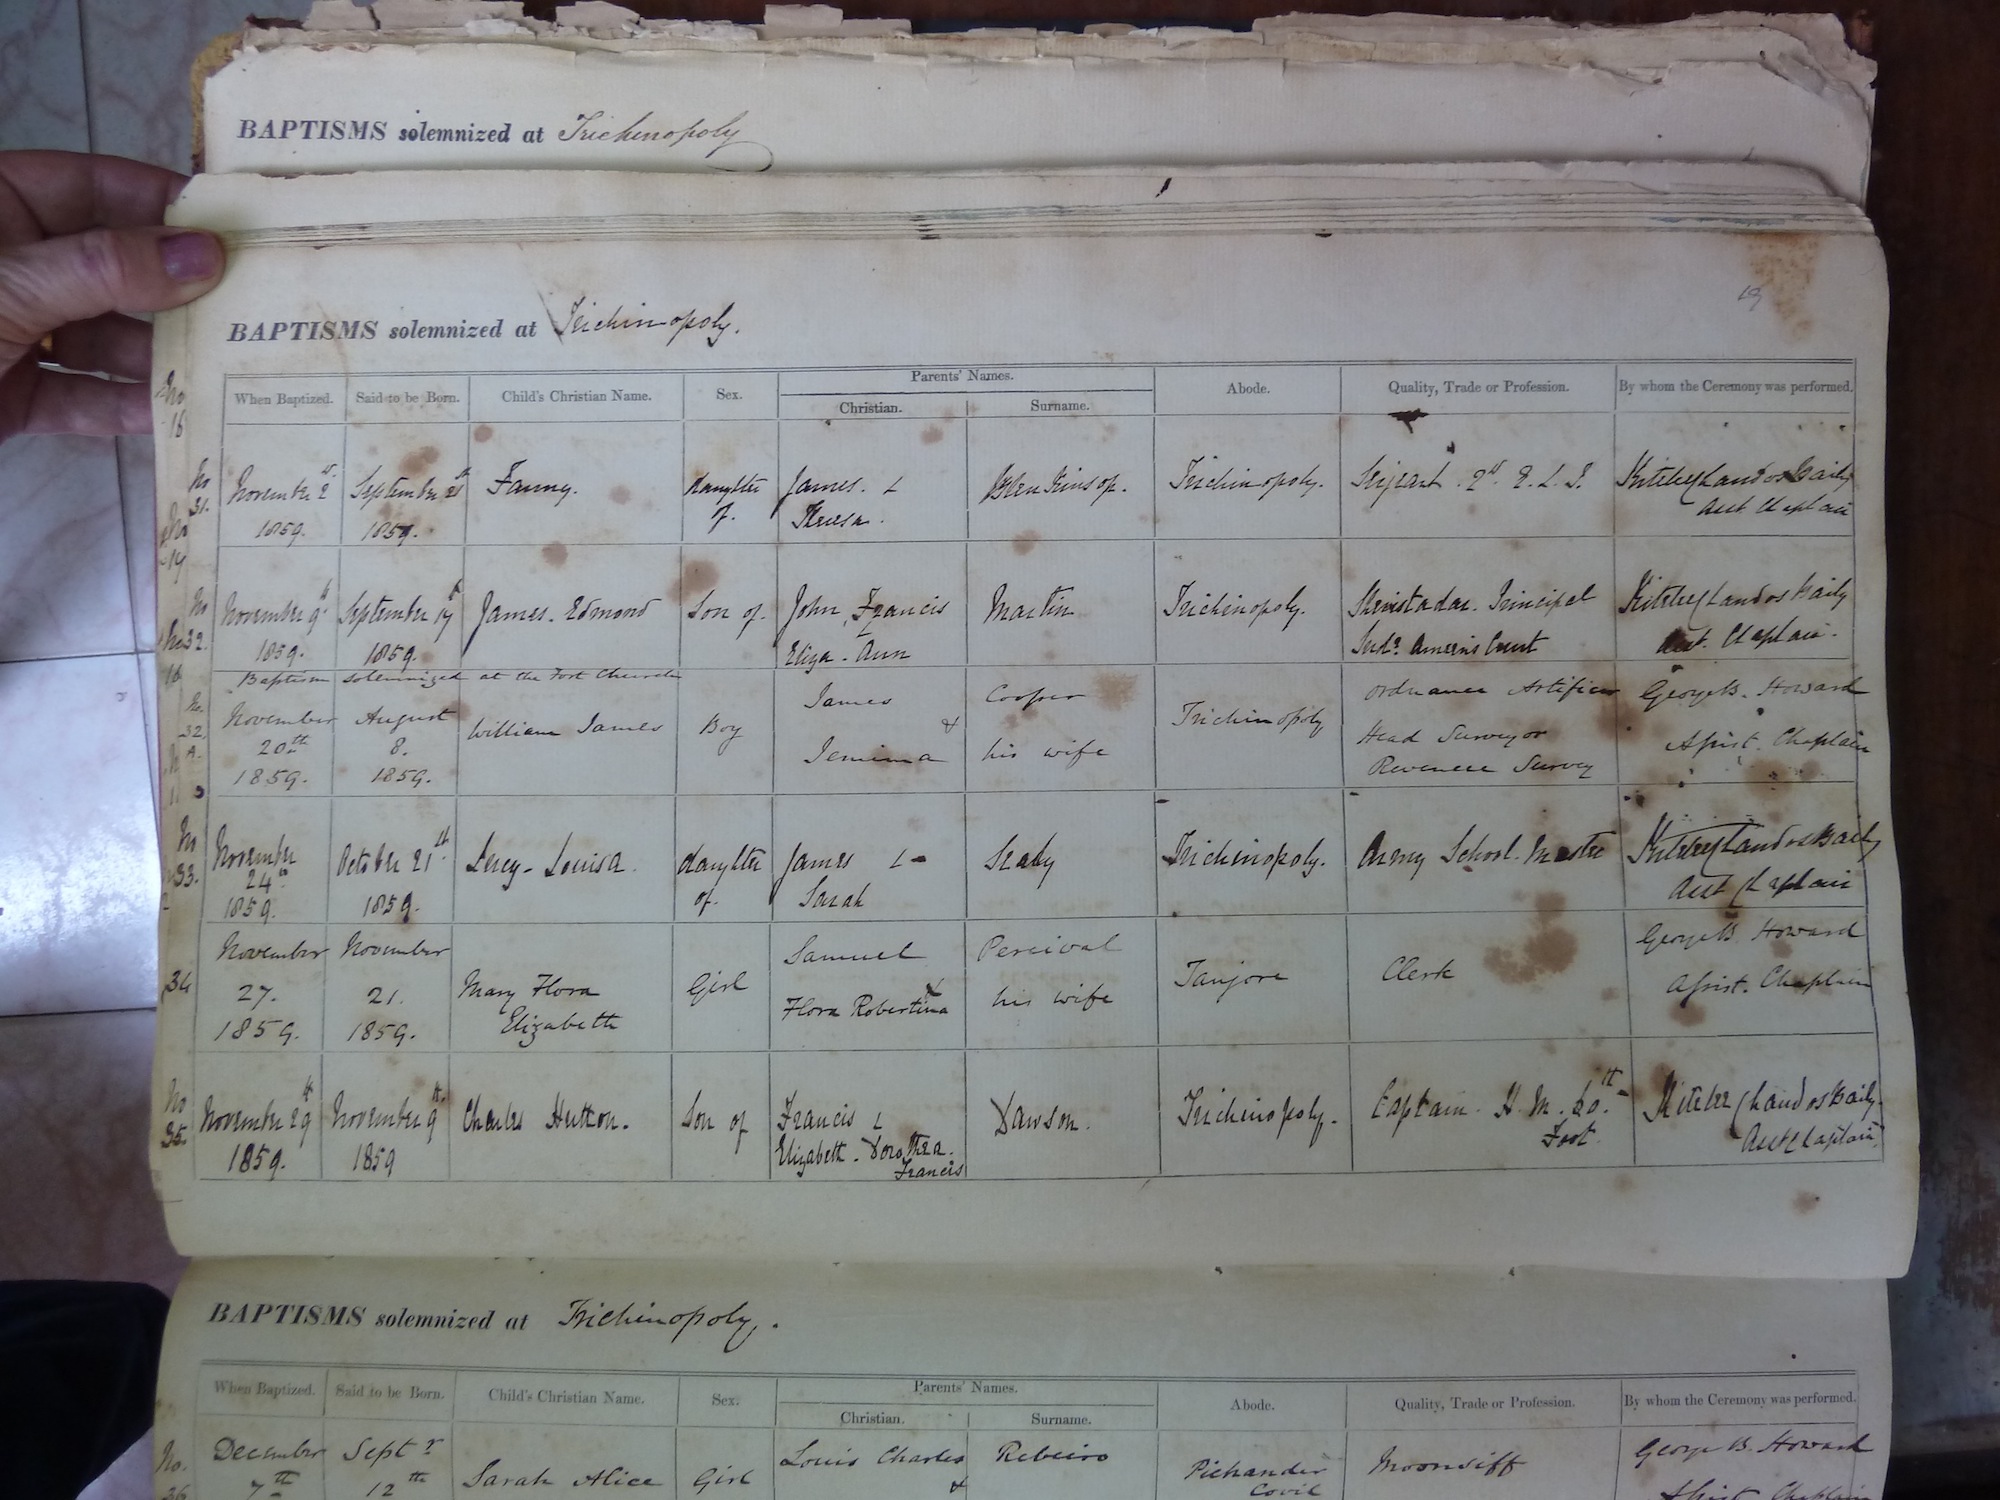 BAPTISMS solemnized at Trichinopoly
BAPTISMS solemnized at Trichinopoly.
19
Parents' Names.
When Baptized. Said to be Born. Child's Christian Name. Sex. Christian. Surname. Abode. Quality, Trade or Profession. By whom the Ceremony was performed.
No
16
No 31. November 2 September Fanny. daughter of. James. & Theresa. Blenkinsop. Trichinopoly. Serjeant. 2d E. L. I. Asst Chaplain
1859. 1859.
No 32. November 9th September 17th James. Edmond Son of. John, Francis Martin Trichinopoly. Sheristadar. Principal
1859. 1859. Eliza - Ann Sudr Ameens Court Asst. Chaplain.
Baptism solemnized at the Fort Church
No. 32 A. November August William James Boy James & Cooper Trichinopoly Ordnance Artificer George B. Howard
20th 8. Jemima his wife Head Surveyor Assist. Chaplain
1859. 1859. Revenue Survey
No 33. November October 21st Lucy - Louisa. daughter of. James & Sarah Trichinopoly. Army School. Master
24th Asst Chaplain
1859. 1859.
34 November November Mary Flora Girl Samuel & Percival Tanjore Clerk George B. Howard
27. 21. Elizabeth Flora Robertina his wife Assist. Chaplain
1859. 1859.
No 35. November 29th November 9th Charles Hutton. Son of Francis & Dawson. Trichinopoly. Captain. H. M. 60th
1859. 1859 Elizabeth - Dorothea. Foot Asst Chaplain
Francis
BAPTISMS solemnized at Trichinopoly.
Parents' Names.
When Baptized. Said to be Born. Child's Christian Name. Sex. Christian. Surname. Abode. Quality, Trade or Profession. By whom the Ceremony was performed.
No. 36 December Septr Sarah Alice Girl Louis Charles Rebeiro Pichander Moonsiff George B. Howard
7th 12th & Covil Assist Chaplain